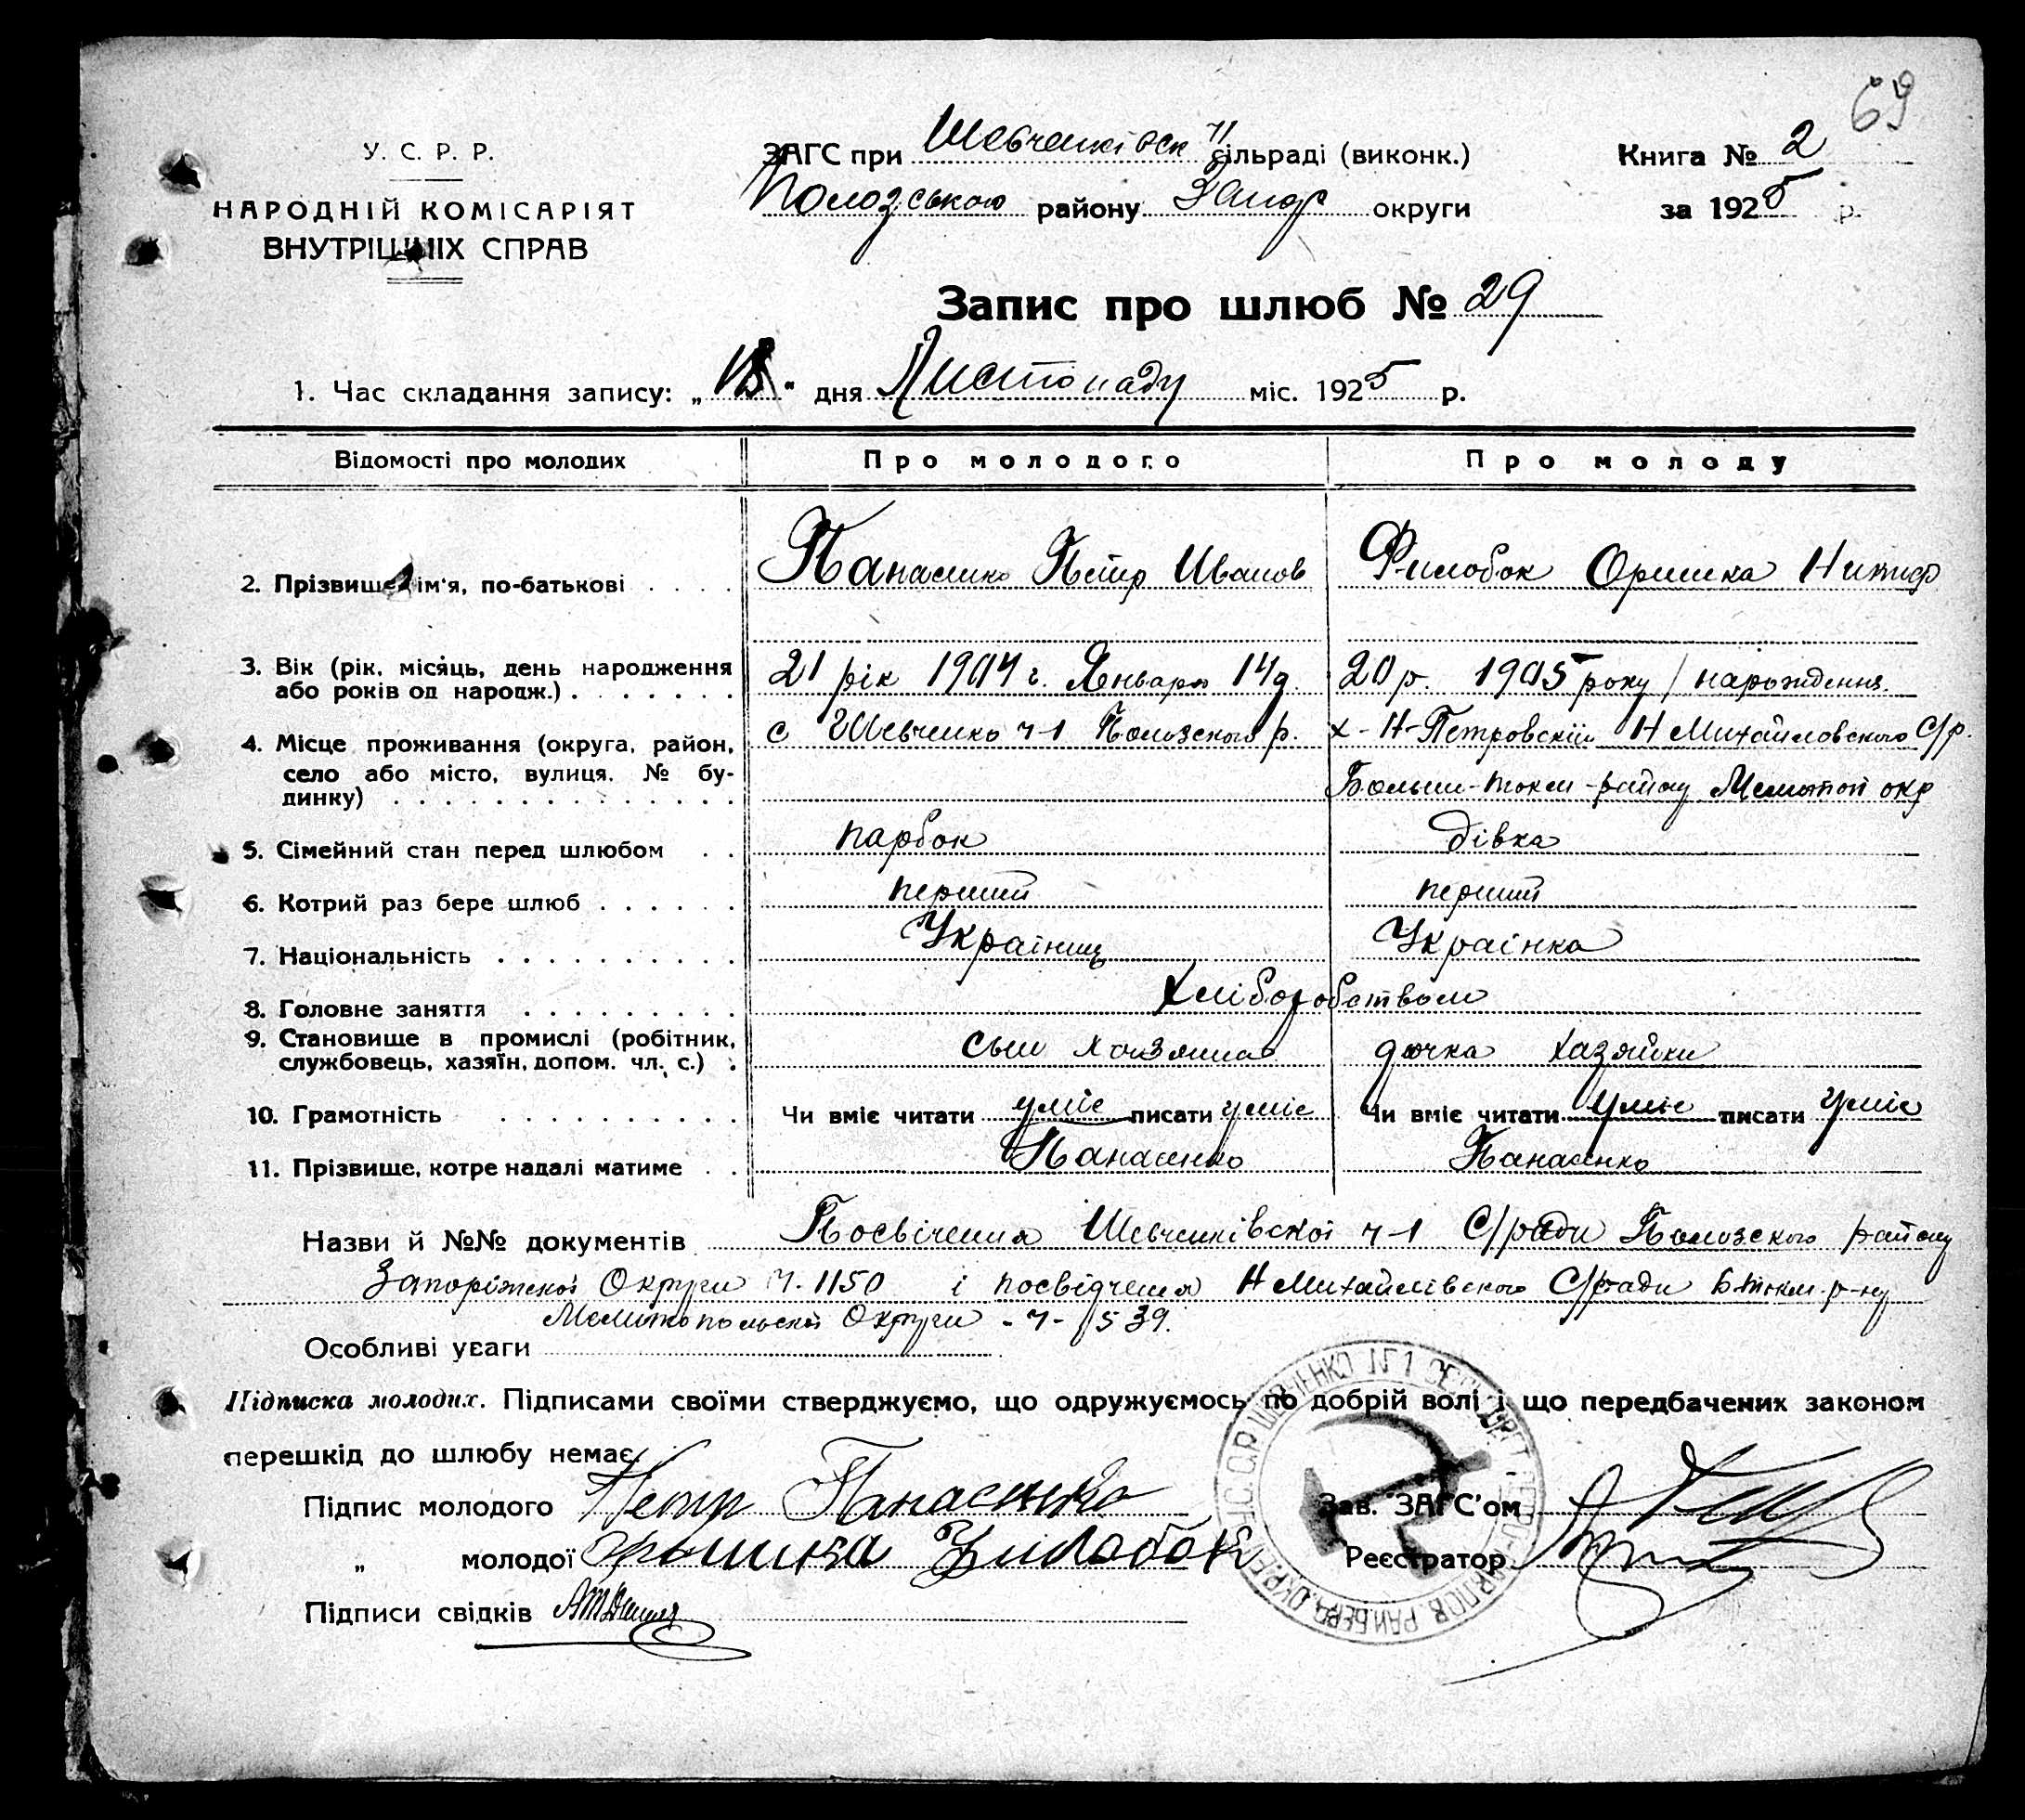 69
У. С. Р. Р.
НАРОДНІЙ КОМІСАРІЯТ
ВНУТРІШНІХ СПРАВ
ЗАГС при Шевченківськ сільраді (виконк.)
Пологзською району Запор округи
Книга № 2
за 1925 р.
Запис про шлюб № 29
1. Час складання запису: „18" дня Листопаду міс. 1925 р.
Відомості про молодих Про молодого Про молоду
2. Прізвище, ім'я, по-батькові Панасенко Петр Иванов Филобок Оришка Никиф
3. Вік (рік, місяць, день народження 21 рік 1904 г. Января 14 д. 20 р. 1905 року нарождення.
або років од народж.)
4. Місце проживання (округа, район, с Шевченко ч-1 Пологзского р. х-Н-Петровский НМихайловского С/р.
село або місто, вулиця, № бу-
динку) Больш-токм-району Мелитоп окр
5. Сімейний стан перед шлюбом парбок дівка
6. Котрий раз бере шлюб перший перший
7. Національність Українищ Українка
8. Головне заняття Хліборобством
9. Становище в промислі (робітник, сын хазяина дочка хазяйки
службовець, хазяїн, допом. чл. с.)
10. Грамотність Чи вміє читати уміє писати уміє Чи вміє читати уміє писати уміє
11. Прізвище, котре надалі матиме Панасенко Панасенко
Назви й №№ документів Посвічення Шевченківскоі ч-1 С/ради Пологзского району
Запоріжскоі Округи ч. 1150 і посвідчення НМихайлівского С/ради Б-токм. р-ну
Мелитопольскоі Округи -ч- 539.
Особливі уваги
Підписка молодих. Підписами своїми стверджуємо, що одружуємось по добрій волі і що передбачених законом
перешкід до шлюбу немає.
Підпис молодого Петр Панасенко
„ молодої Оришка Филобок
Підписи свідків
Зав. ЗАГС'ом
Реєстратор